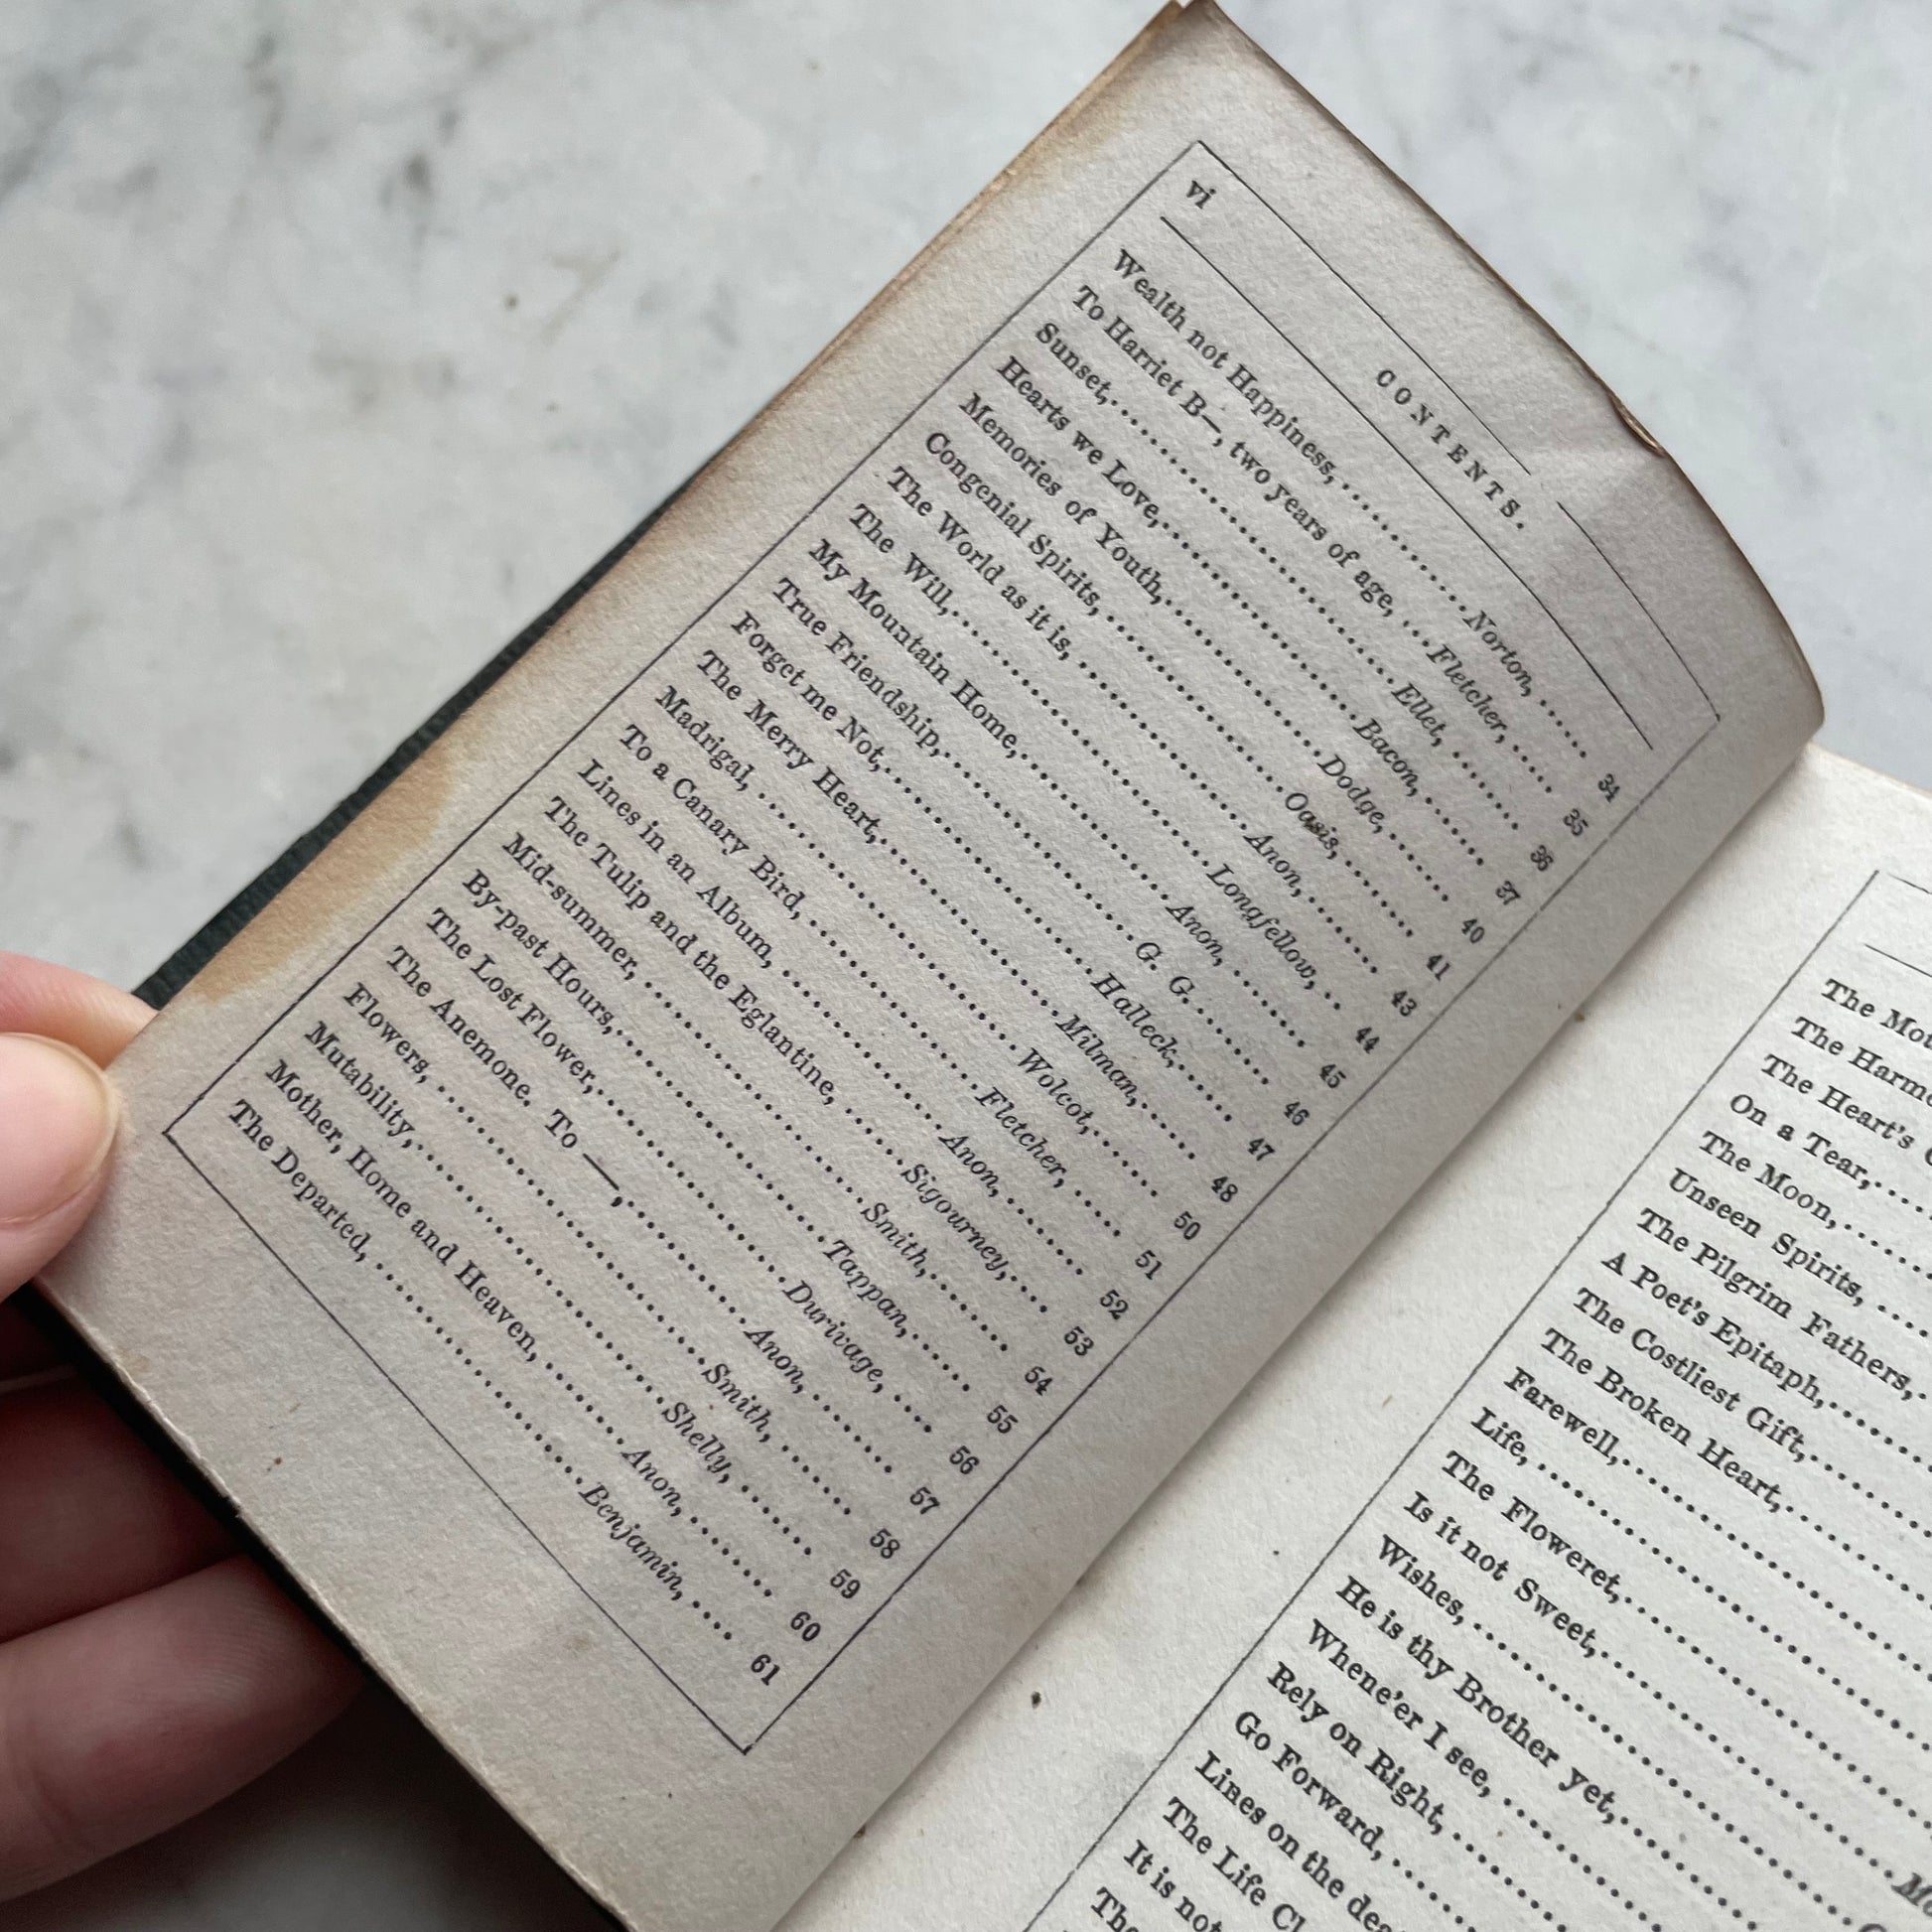 vi
CONTENTS.
Wealth not Happiness,..........Norton,...... 34
To Harriet B—, two years of age,....Fletcher,..... 35
Sunset,....................Ellet,...... 36
Hearts we Love,................Bacon,...... 37
Memories of Youth,..............Dodge,...... 40
Congenial Spirits,..............Oasis,...... 41
The World as it is,..............Anon,...... 43
The Will,....................Longfellow,.. 44
My Mountain Home,..............Anon,...... 45
True Friendship,................G. G....... 46
Forget me Not,................Halleck,..... 47
The Merry Heart,................Milman,..... 48
Madrigal,....................Wolcot,..... 50
To a Canary Bird,..............Fletcher,.... 51
Lines in an Album,..............Anon,...... 52
The Tulip and the Eglantine,......Sigourney,... 53
Mid-summer,................Smith,...... 54
By-past Hours,................Tappan,..... 55
The Lost Flower,................Durivage,.... 56
The Anemone. To —,............Anon,...... 57
Flowers,....................Smith,...... 58
Mutability,....................Shelly,...... 59
Mother, Home and Heaven,........Anon,...... 60
The Departed,................Benjamin,.... 61
The
The
The Heart's
On a Tear,
The Moon,
Unseen Spirits,
The Pilgrim Fathers,
A Poet's Epitaph,
The Costliest Gift,
The Broken Heart,
Farewell,
Life,
The Floweret,
Is it not Sweet,
Wishes,
He is thy Brother yet,
Whene'er I see,
Rely on Right,
Go Forward,
Lines on the
The Life
It is not